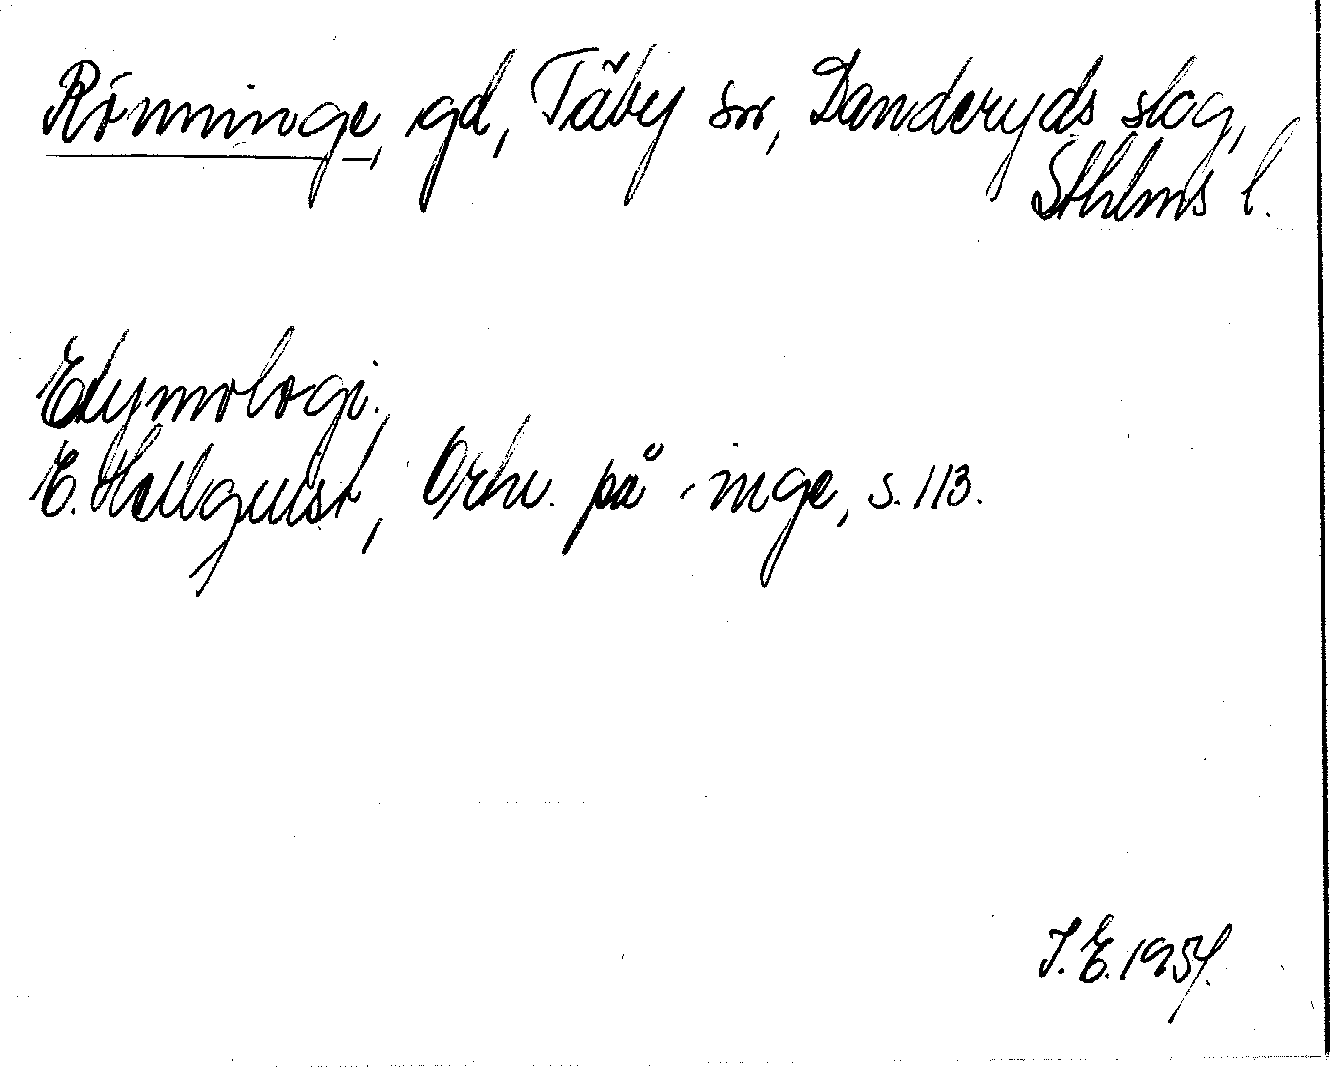 Rönninge, gd, Täby sn, Danderyds slag,
Sthlms l.
Etymologi.
E. Hellquist, Ortn. på -inge, s. 113.
I. E. 1954.